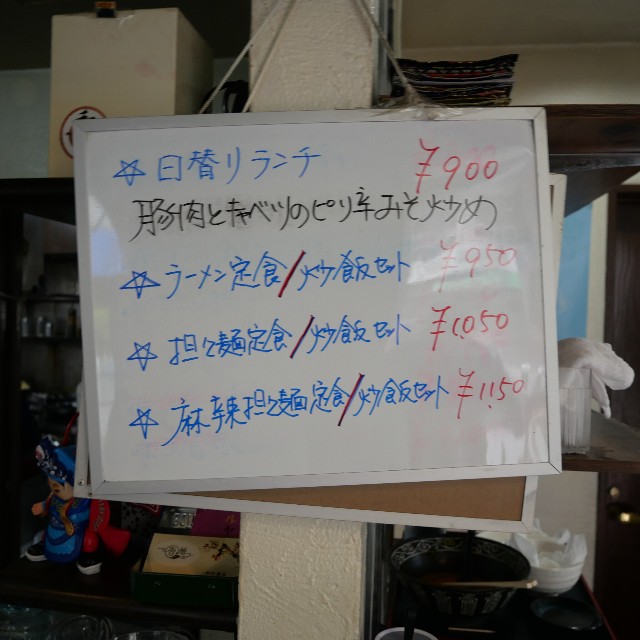 ☆ 日替りランチ ¥900
豚肉とキャベツのピリ辛みそ炒め
☆ ラーメン定食/炒飯セット ¥950
☆ 担々麺定食/炒飯セット ¥1,050
☆ 麻辣担々麺定食/炒飯セット ¥1,150